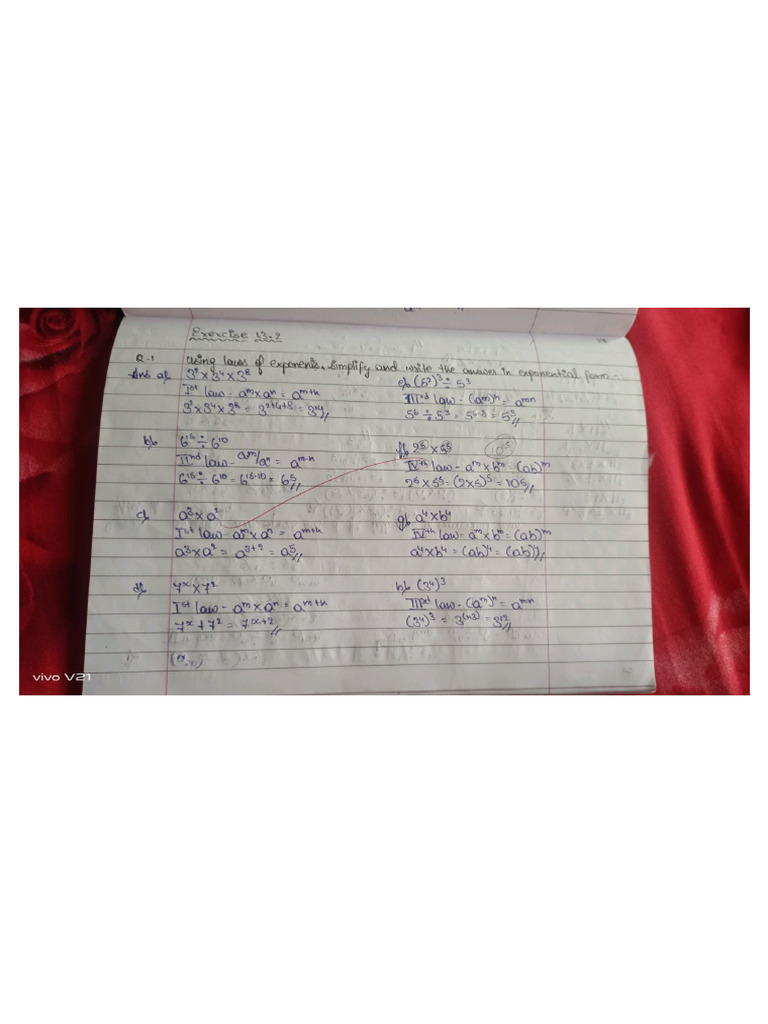 Exercise 13.2
Q-1 Using laws of exponents, simplify and write the answer in exponential form -
Ans a) 3² × 3⁴ × 3⁸
Iˢᵗ law - aᵐ × aⁿ = aᵐ⁺ⁿ
3² × 3⁴ × 3⁸ = 3²⁺⁴⁺⁸ = 3¹⁴//
b) 6¹⁵ ÷ 6¹⁰
IIⁿᵈ law - aᵐ/aⁿ = aᵐ⁻ⁿ
6¹⁵ ÷ 6¹⁰ = 6¹⁵⁻¹⁰ = 6⁵//
c) a³ × a²
Iˢᵗ law - aᵐ × aⁿ = aᵐ⁺ⁿ
a³ × a² = a³⁺² = a⁵//
d) 7ˣ × 7²
Iˢᵗ law - aᵐ × aⁿ = aᵐ⁺ⁿ
7ˣ + 7² = 7ˣ⁺²//
e) (5²)³ ÷ 5³
IIIʳᵈ law - (aᵐ)ⁿ = aᵐⁿ
f) 2⁵ × 5⁵ 10⁵
IVᵗʰ law - aᵐ × bᵐ = (ab)ᵐ
2⁵ × 5⁵ = (2×5)⁵ = 10⁵//
g) a⁴ × b⁴
IVᵗʰ law = aᵐ × bᵐ = (ab)ᵐ
a⁴ × b⁴ = (ab)⁴ = (ab)⁴//
h) (3⁴)³
IIIʳᵈ law - (aᵐ)ⁿ = aᵐⁿ
(3⁴)³ = 3⁽⁴ˣ³⁾ = 3¹²//
vivo V21